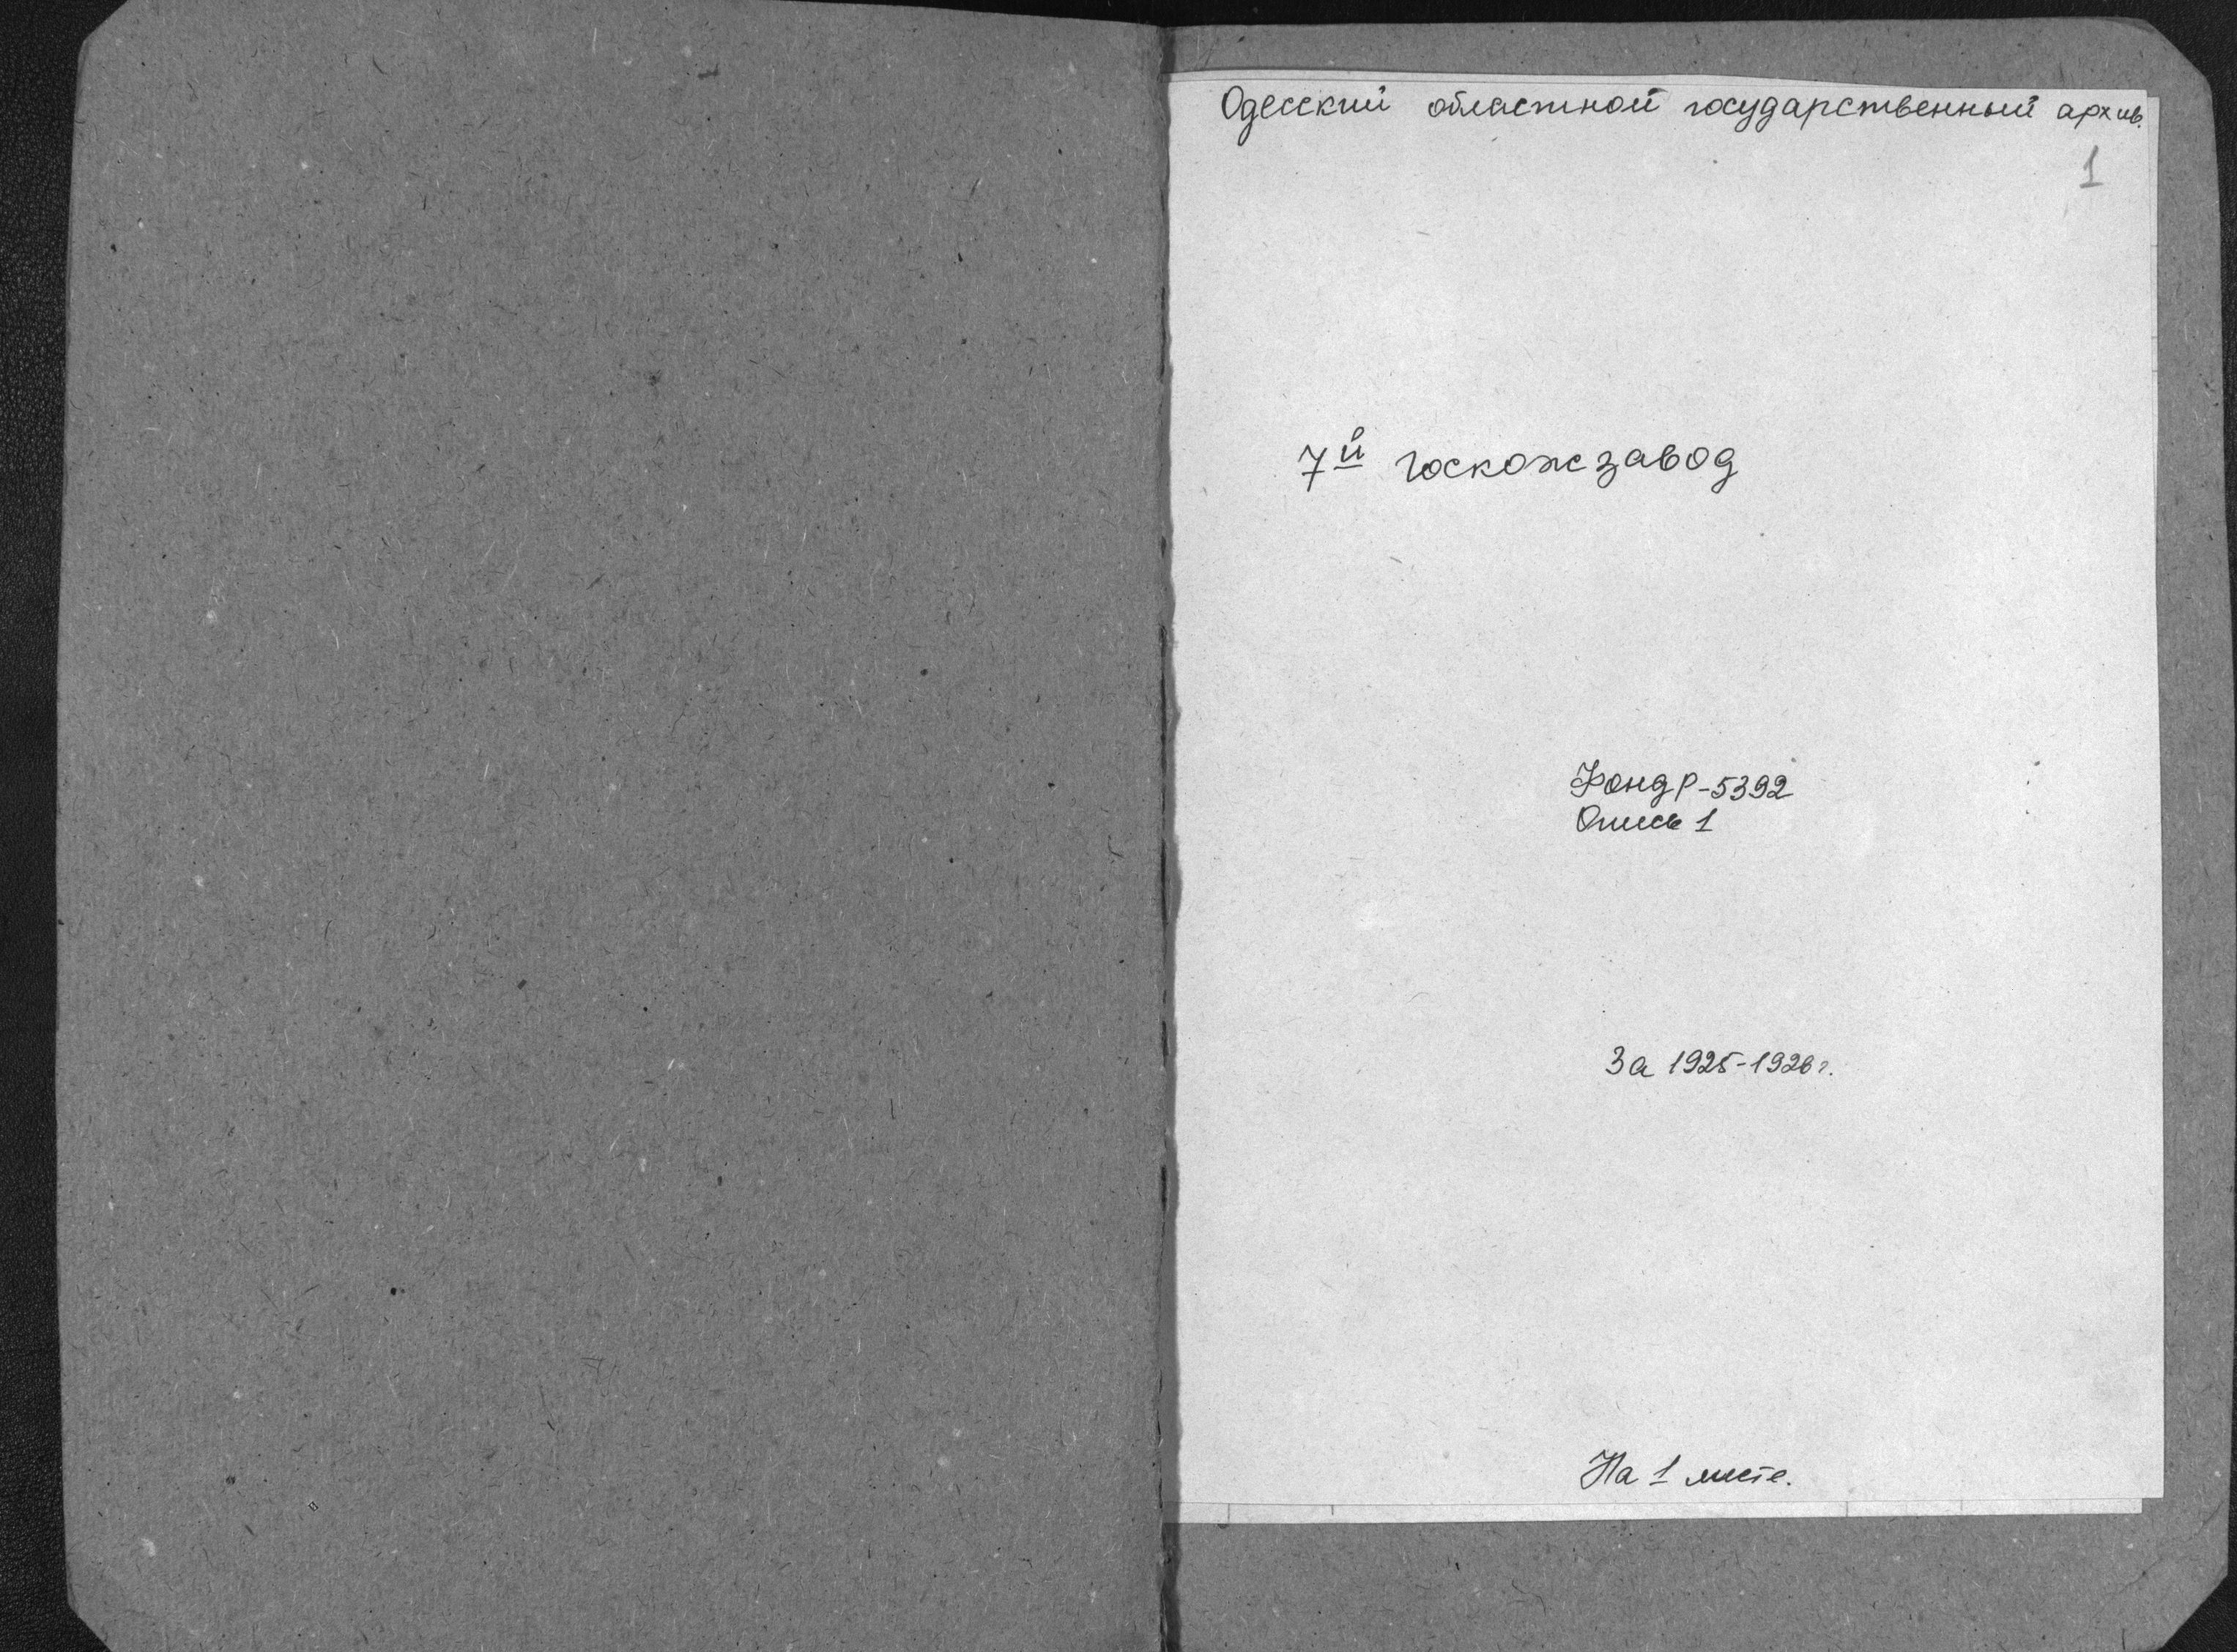 Одесский областной государственный архив.
1
7й госкожзавод
Фонд Р-5392
Опись 1
За 1925-1926 г.
На 1 листе.